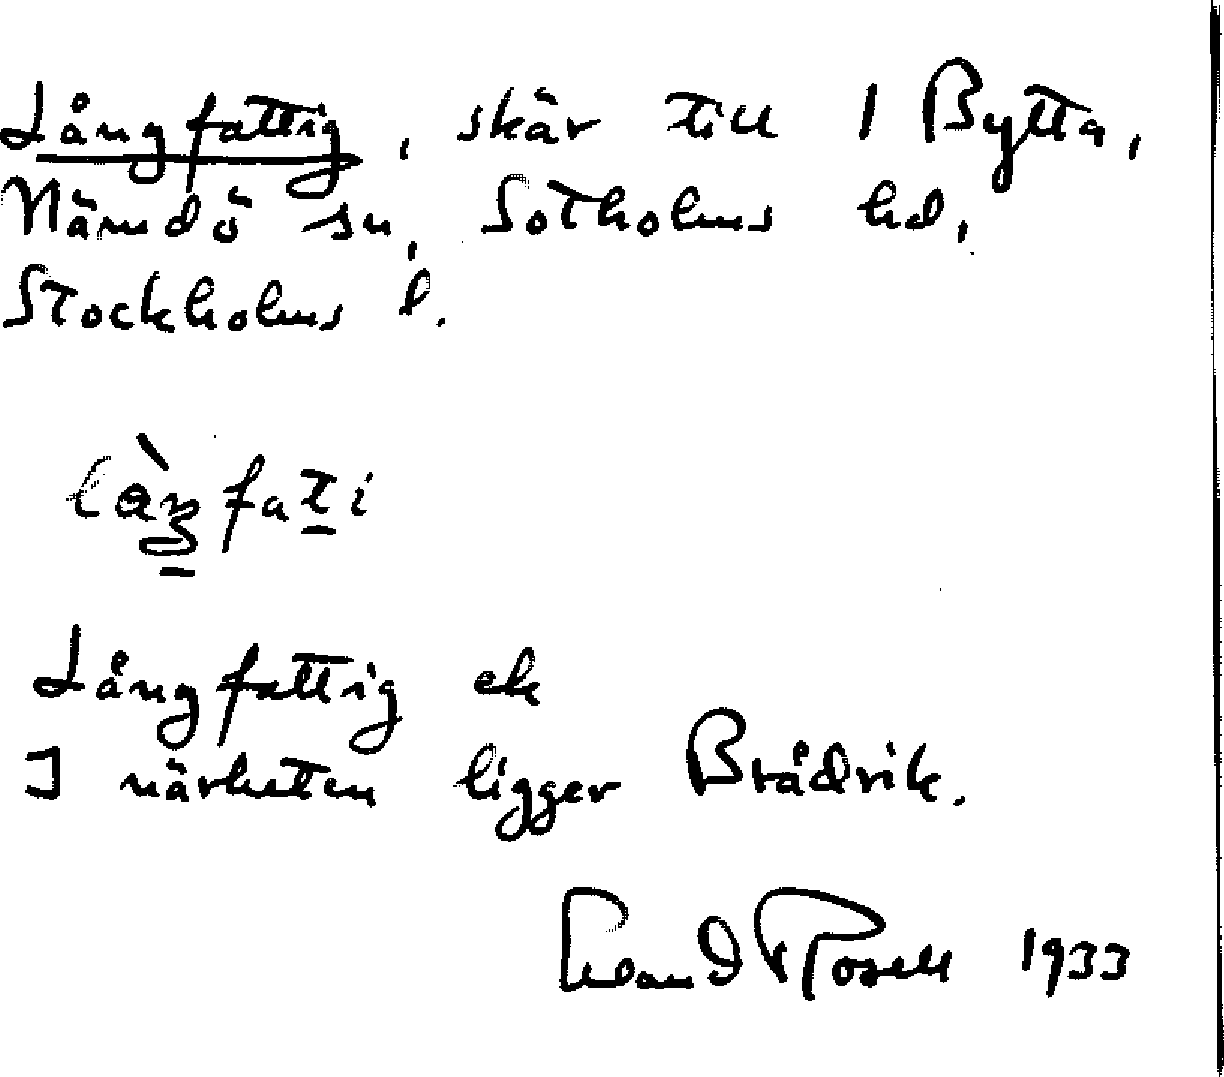 Långfattig, skär till 1 Bytta,
Nämdö sn, Sotholms hd,
Stockholms l.
Långfattig ek
I närheten ligger Brådvik.
Erland Rosell 1933